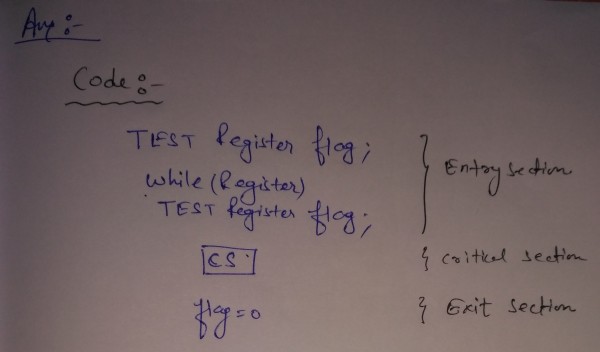 Ans :-
Code :-
TEST Register flag; } Entry section
while (Register)
TEST Register flag;
CS } critical section
flag = 0 } Exit section